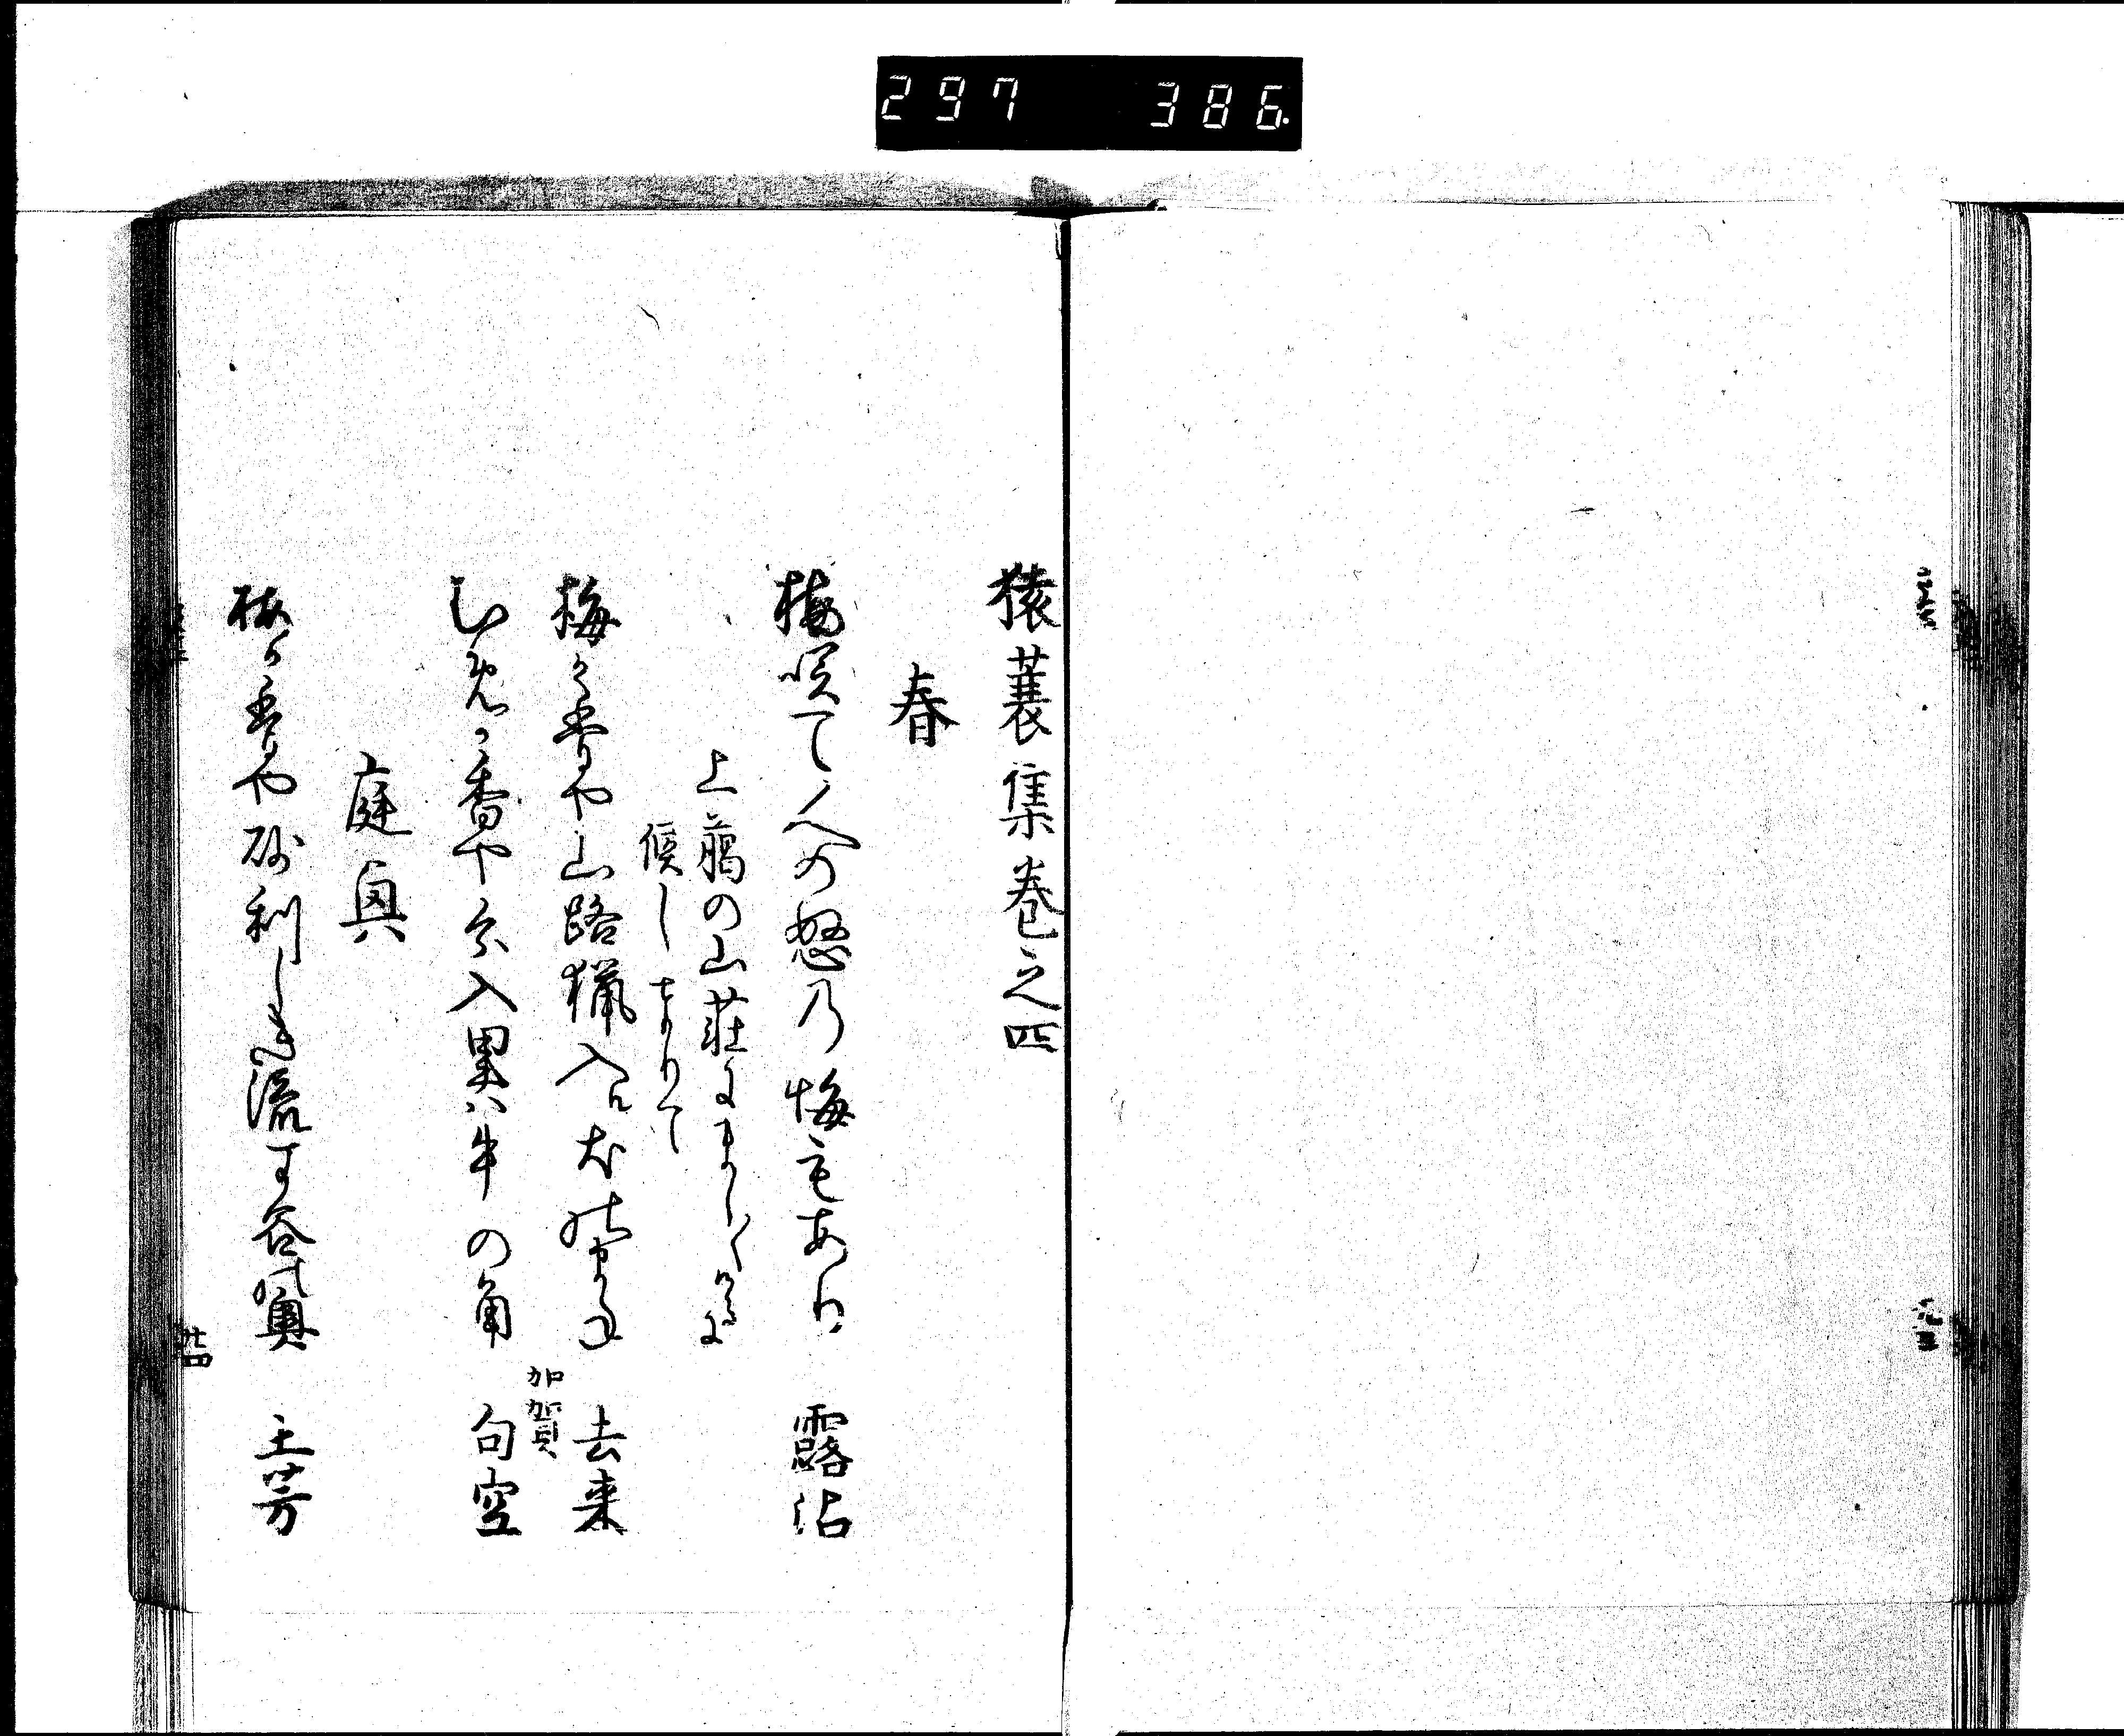 297 386
猿蓑集巻之四
春
梅咲て人の怒の悔もあり 露沾
上臈の山荘にましく／＼けるに
候し奉りて
梅が香や山路猟入ル犬のまね 去来
むめが香や分入里は牛の角 加賀 句空
庭興
梅が香や砂利しき流す谷の奥 土芳
廿四